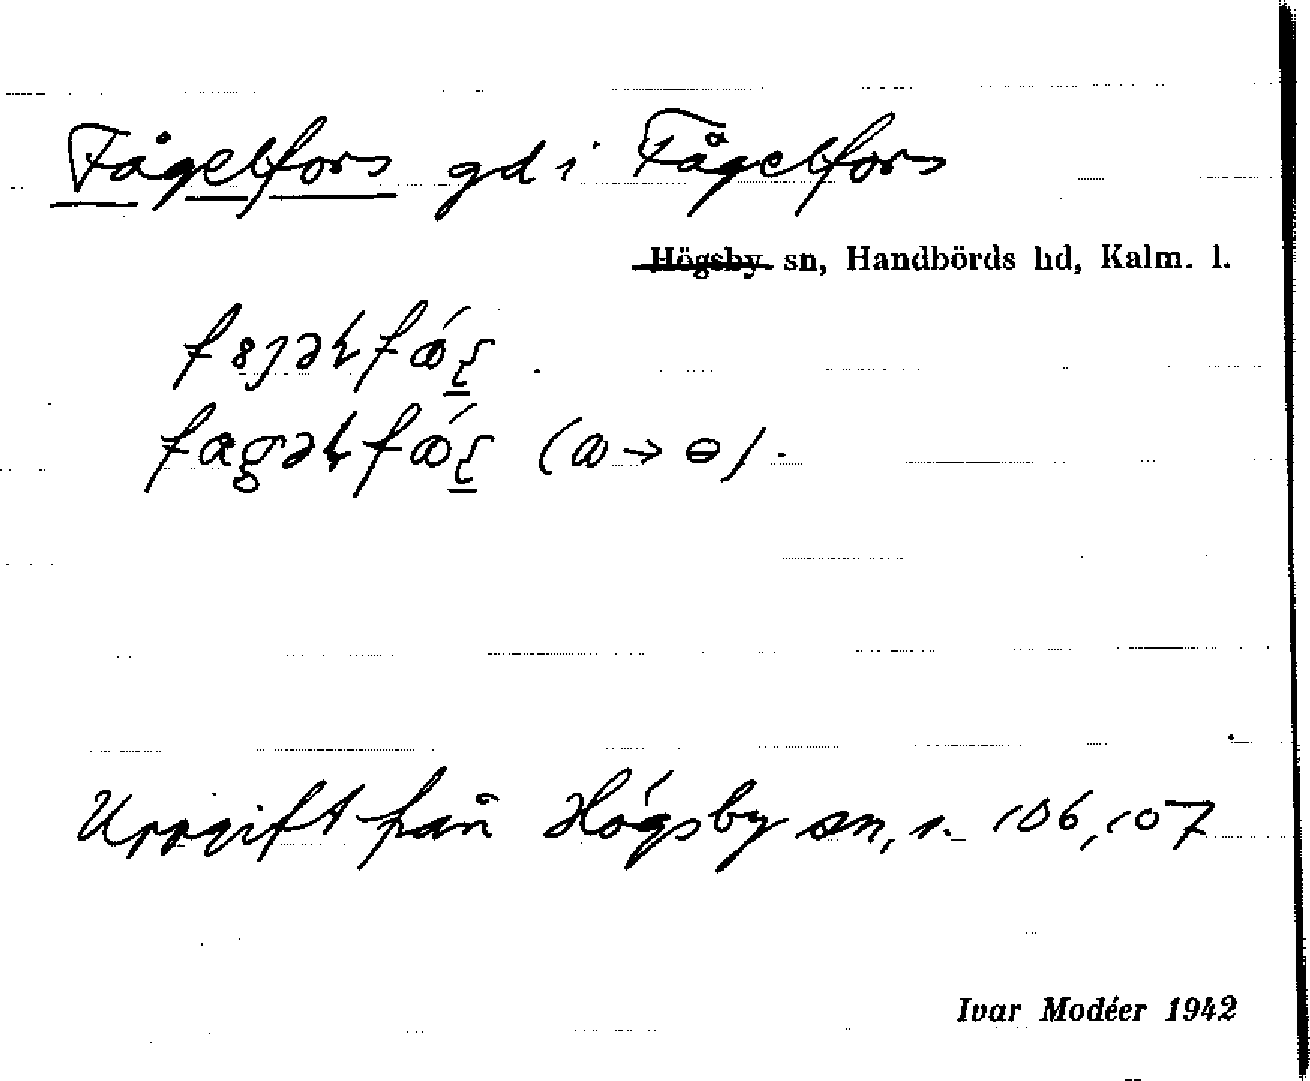 Fågelfors gd i Fågelfors
Högsby sn, Handbörds hd, Kalm. l.
Uppgift från Högsby sn, s. 106, 107
Ivar Modéer 1942